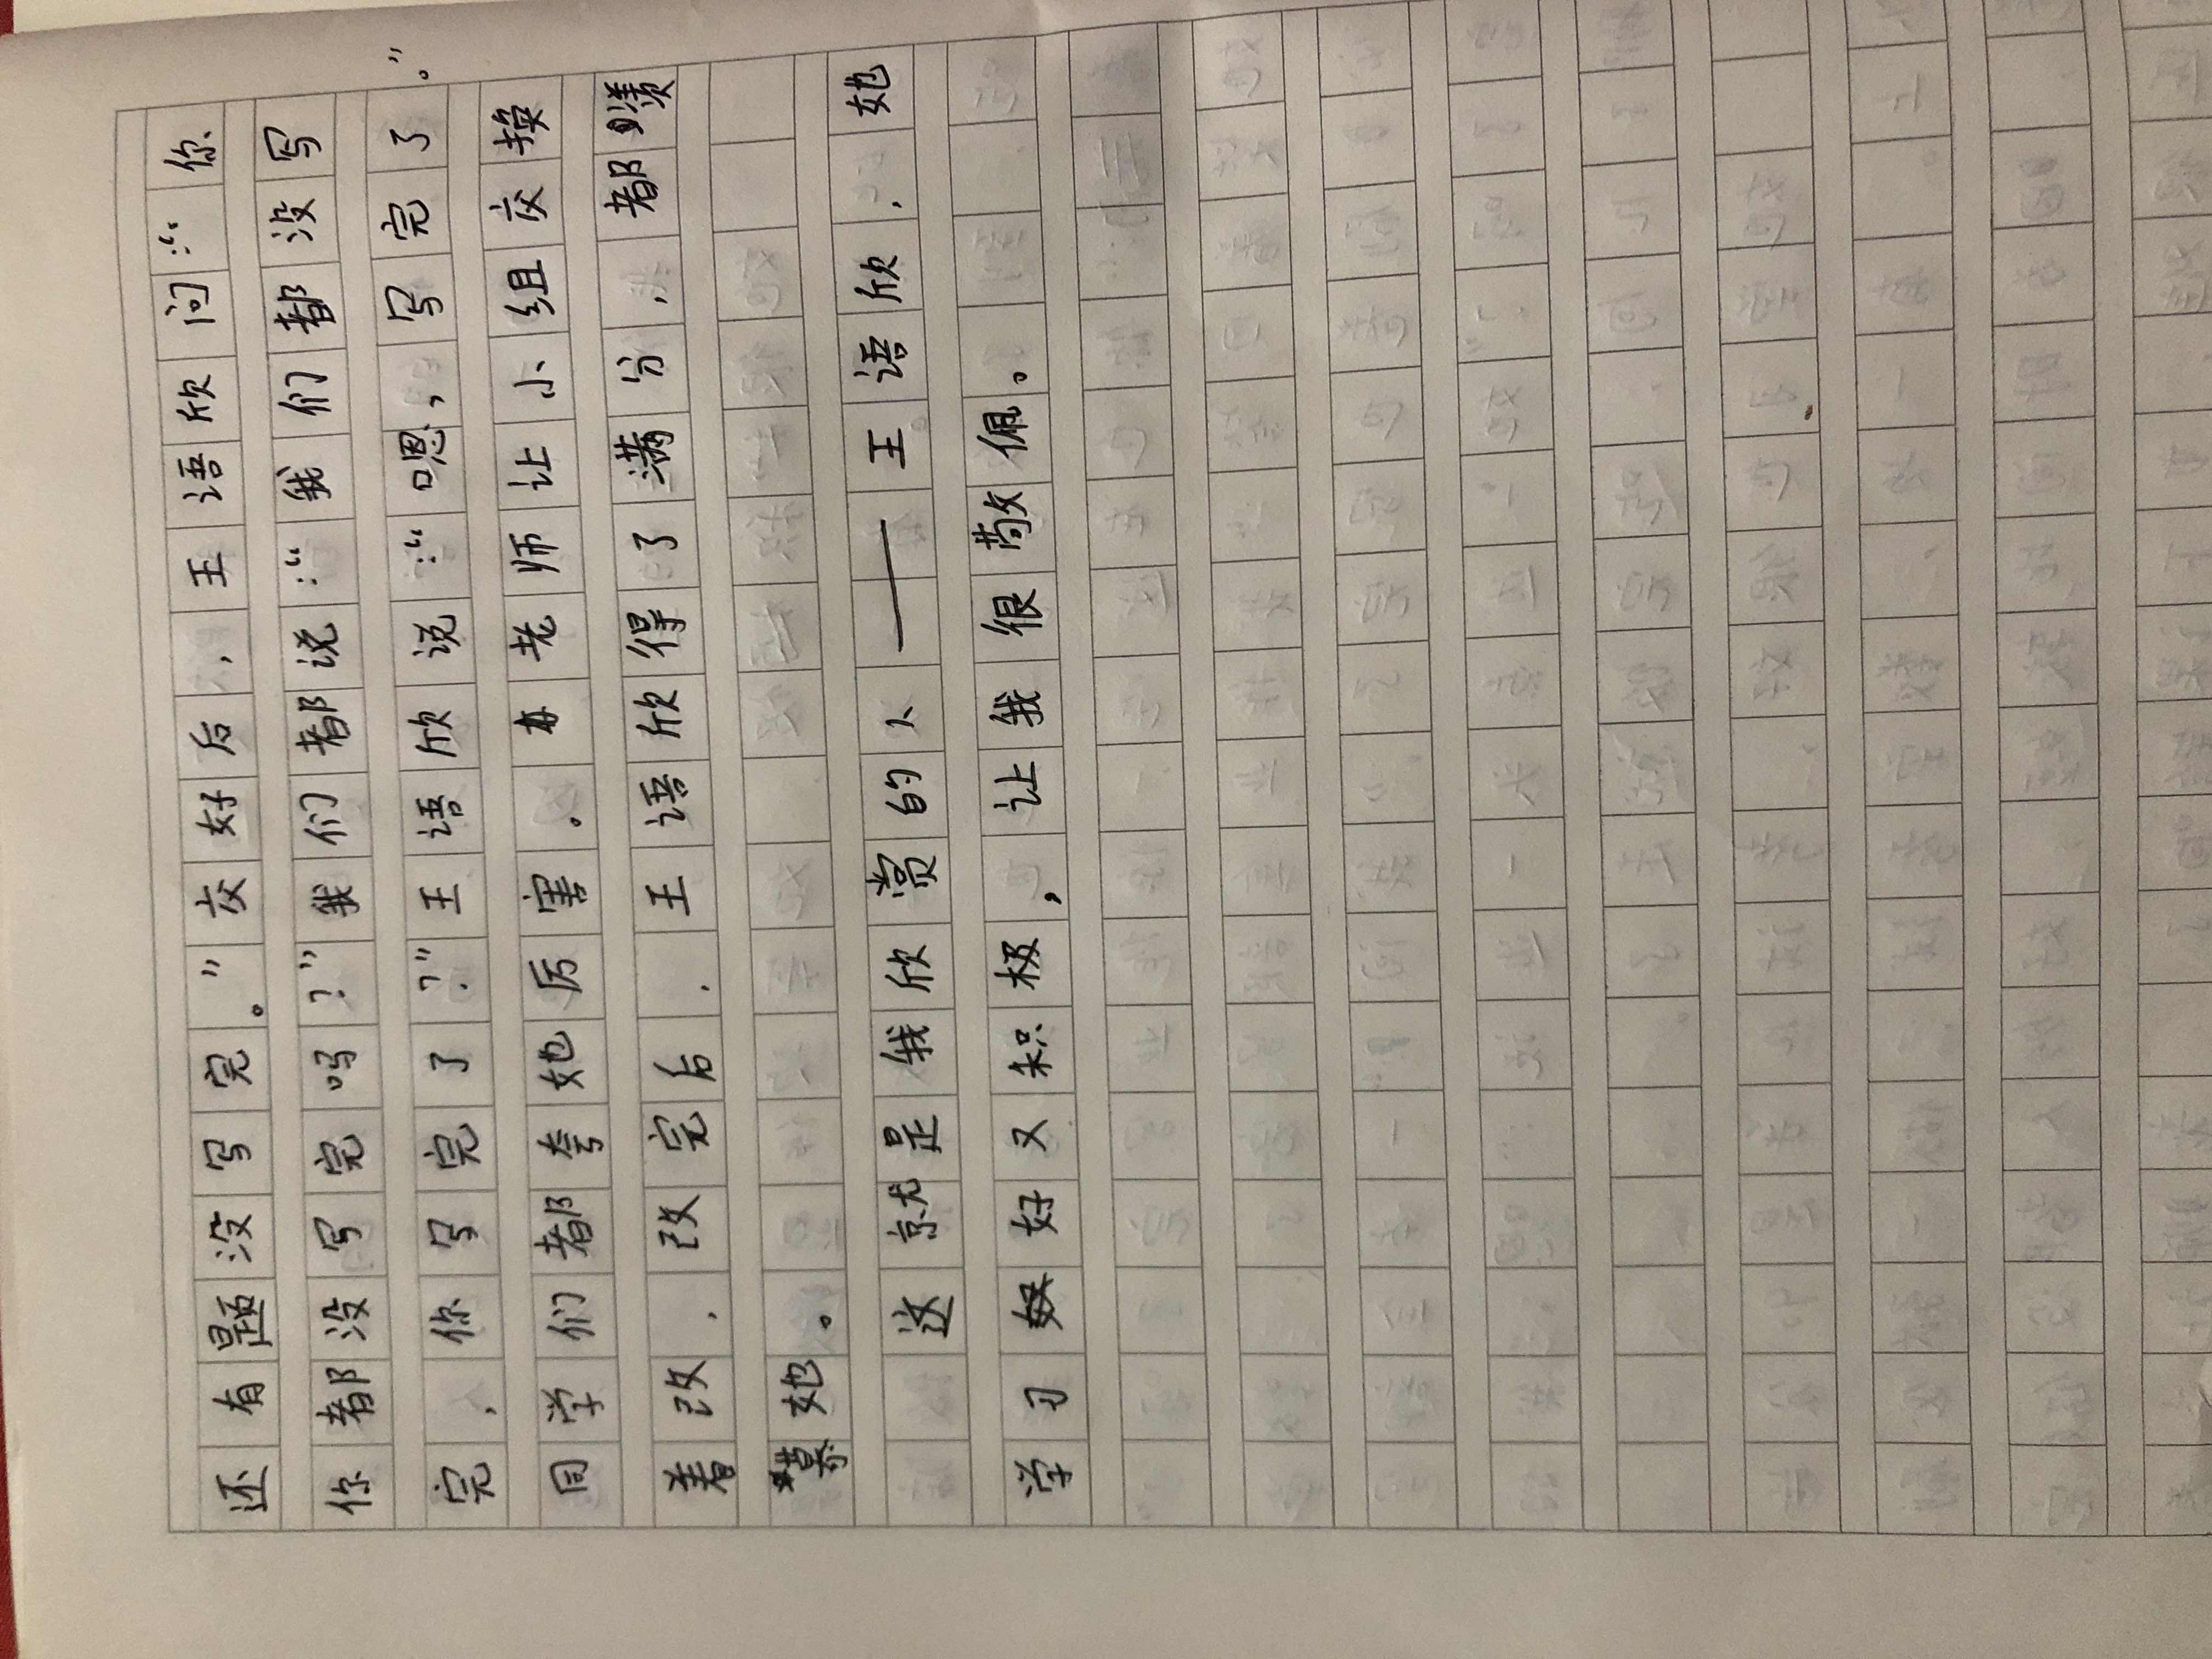 还有题没写完。”交好后，王语欣问：“你
你都没写完吗？”我们都说：“我们都没写
完，你写完了？”王语欣说：“嗯，写完了。”
同学们都夸她厉害。老师让小组交换
着改，改完后，王语欣得了满分，都羡
慕她。
这就是我欣赏的人——王语欣，她
学习好又积极，让我很敬佩。